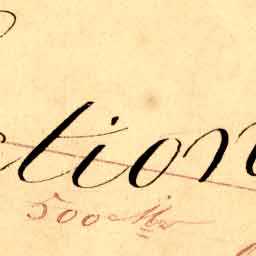 ction
500 Mr